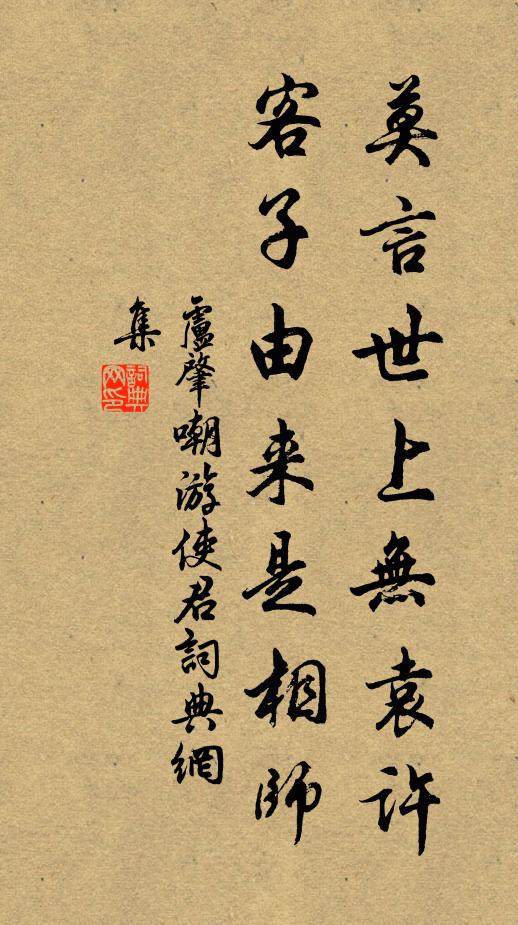 莫言世上無袁許
客子由来是相師
盧肇嘲游使君詞典網
集
詞典網印